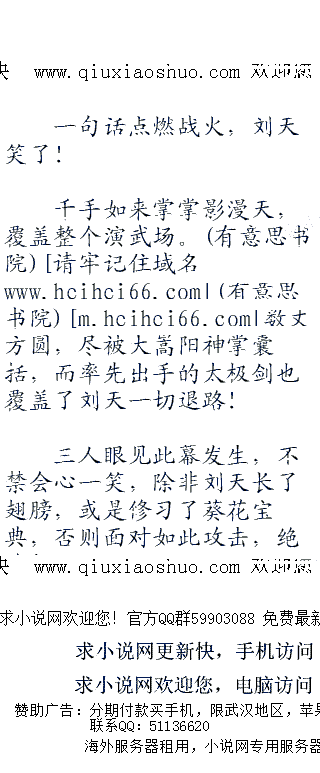 快 www.qiuxiaoshuo.com 欢迎您
一句话点燃战火，刘天
笑了！
千手如来掌掌影漫天，
覆盖整个演武场。(有意思书
院)[请牢记住域名
www.hcihci66.com|(有意思
书院)[m.hcihci66.com|数丈
方圆，尽被大嵩阳神掌囊
括，而率先出手的太极剑也
覆盖了刘天一切退路！
三人眼见此幕发生，不
禁会心一笑，除非刘天长了
翅膀，或是修习了葵花宝
典，否则面对如此攻击，绝
快 www.qiuxiaoshuo.com 欢迎您
求小说网欢迎您！官方QQ群59903088 免费最新
求小说网更新快，手机访问
求小说网欢迎您，电脑访问
赞助广告：分期付款买手机，限武汉地区，苹果
联系QQ：51136620
海外服务器租用，小说网专用服务器